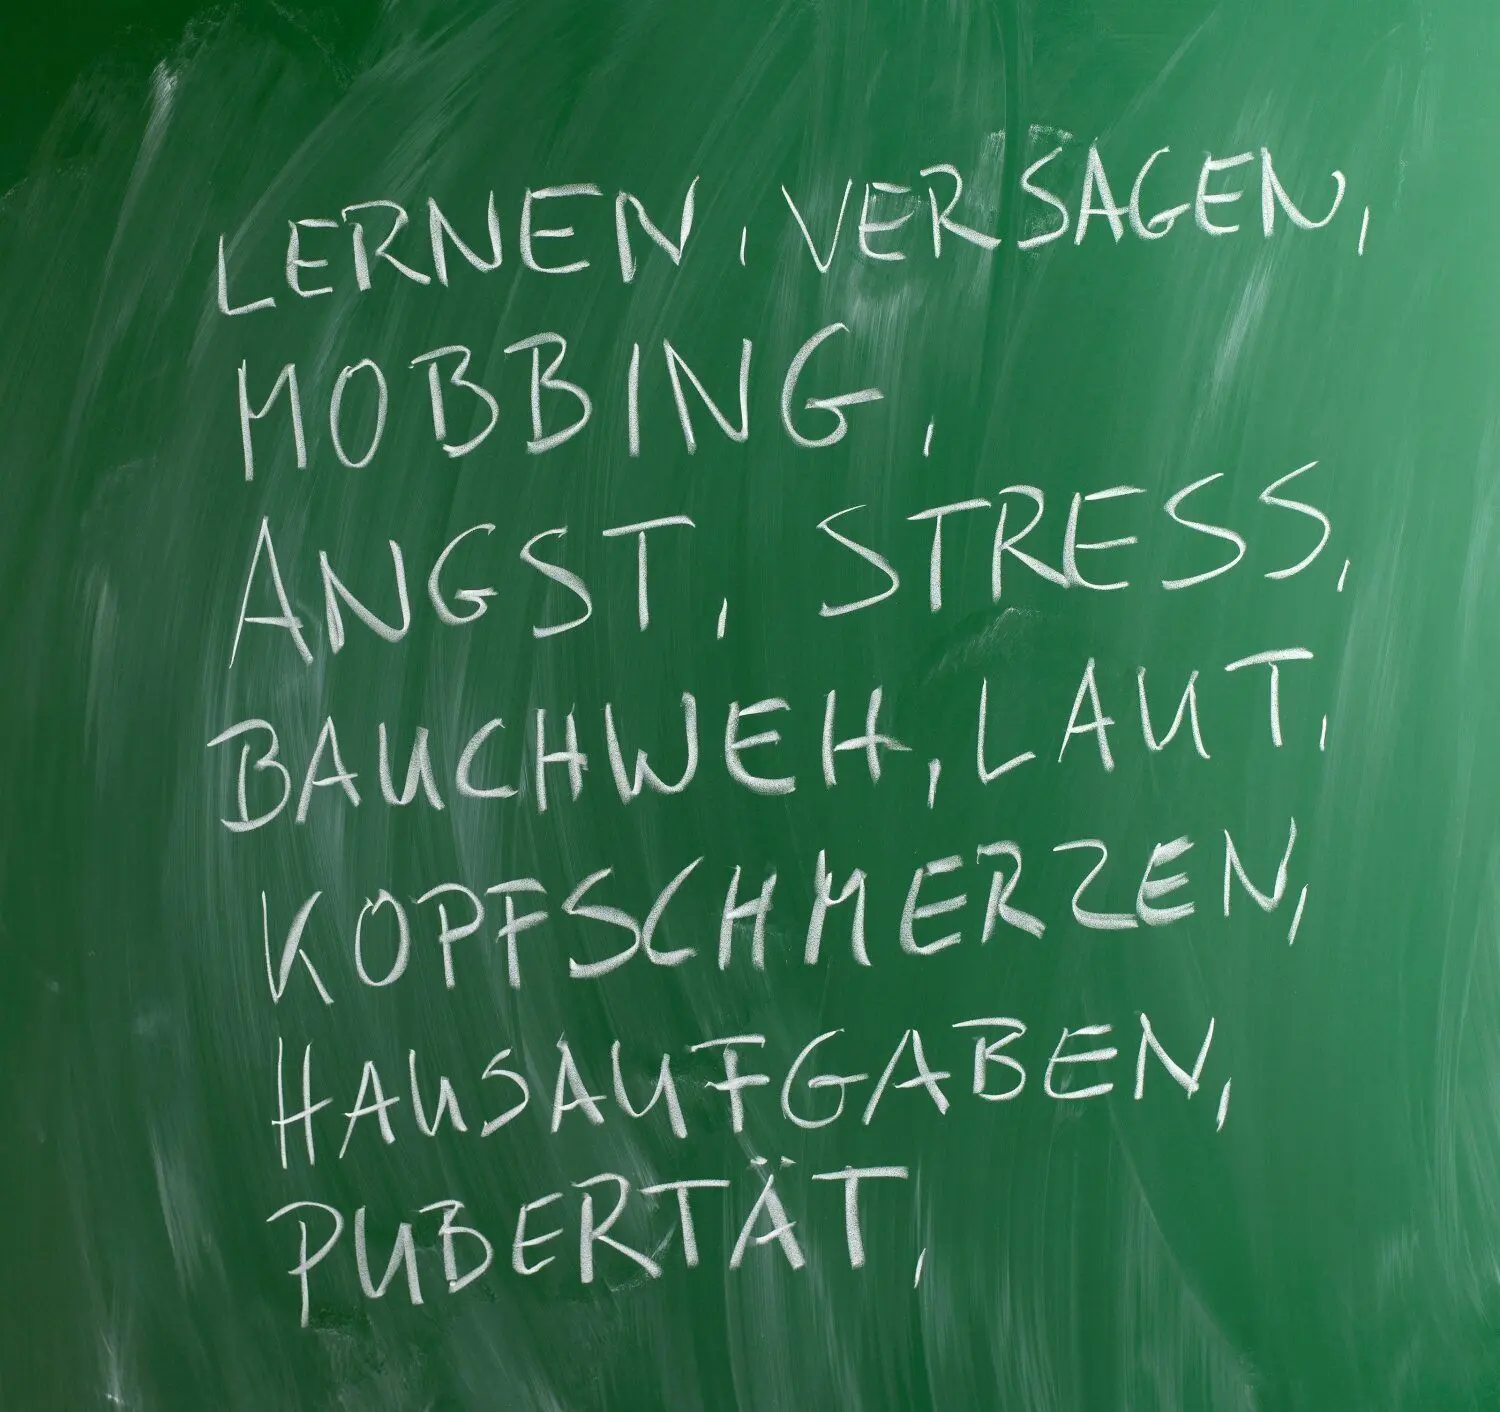 LERNEN, VERSAGEN,
MOBBING,
ANGST, STRESS,
BAUCHWEH, LAUT,
KOPFSCHMERZEN,
HAUSAUFGABEN,
PUBERTÄT,